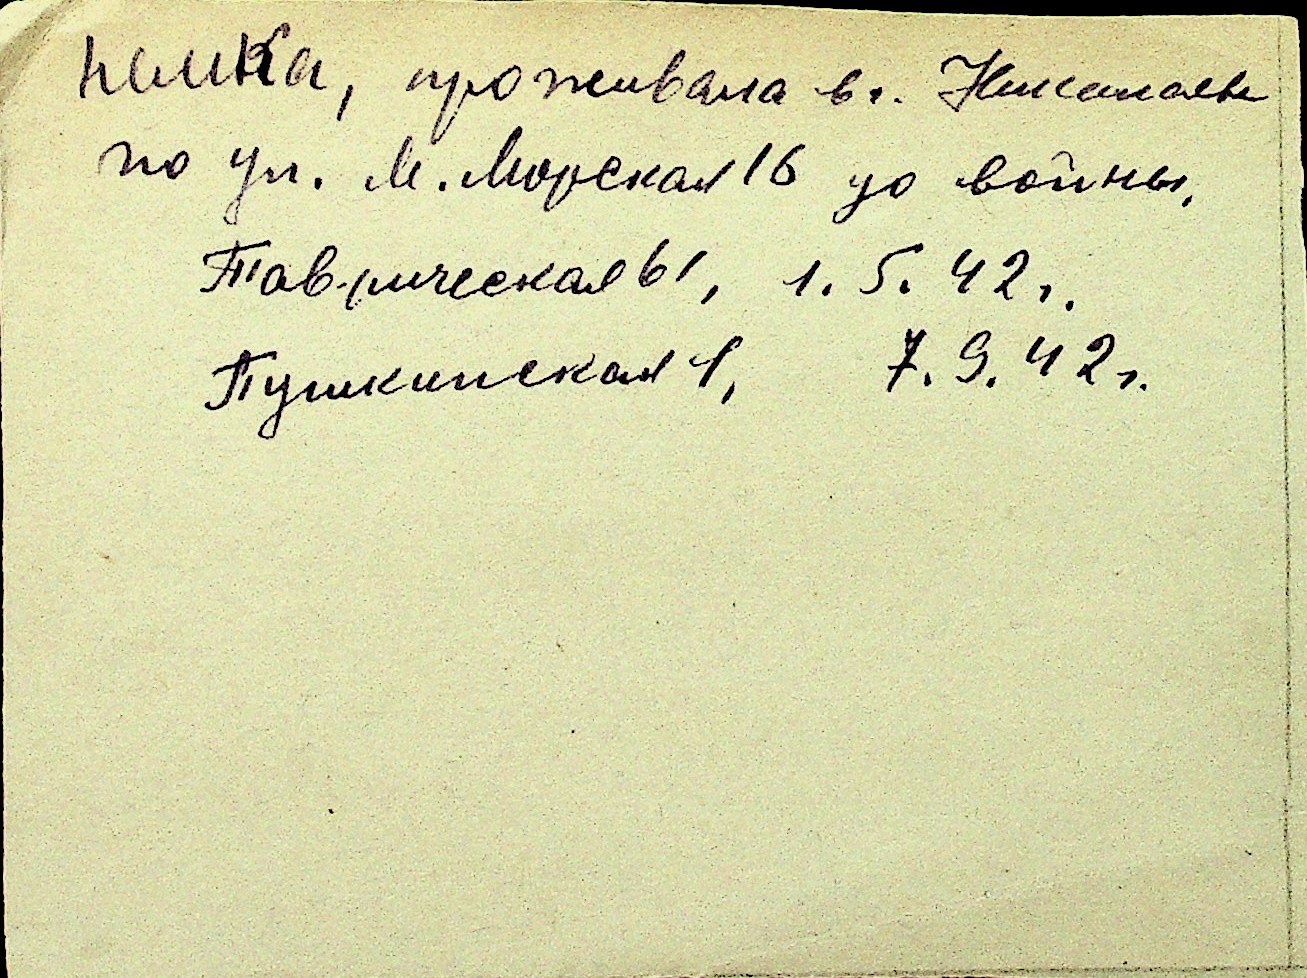 немка, проживала в г. Николаеве
по ул. М. Морская 16 до войны,
Таврическая 61, 1.5.42 г.
Пушкинская 1, 7.9.42 г.